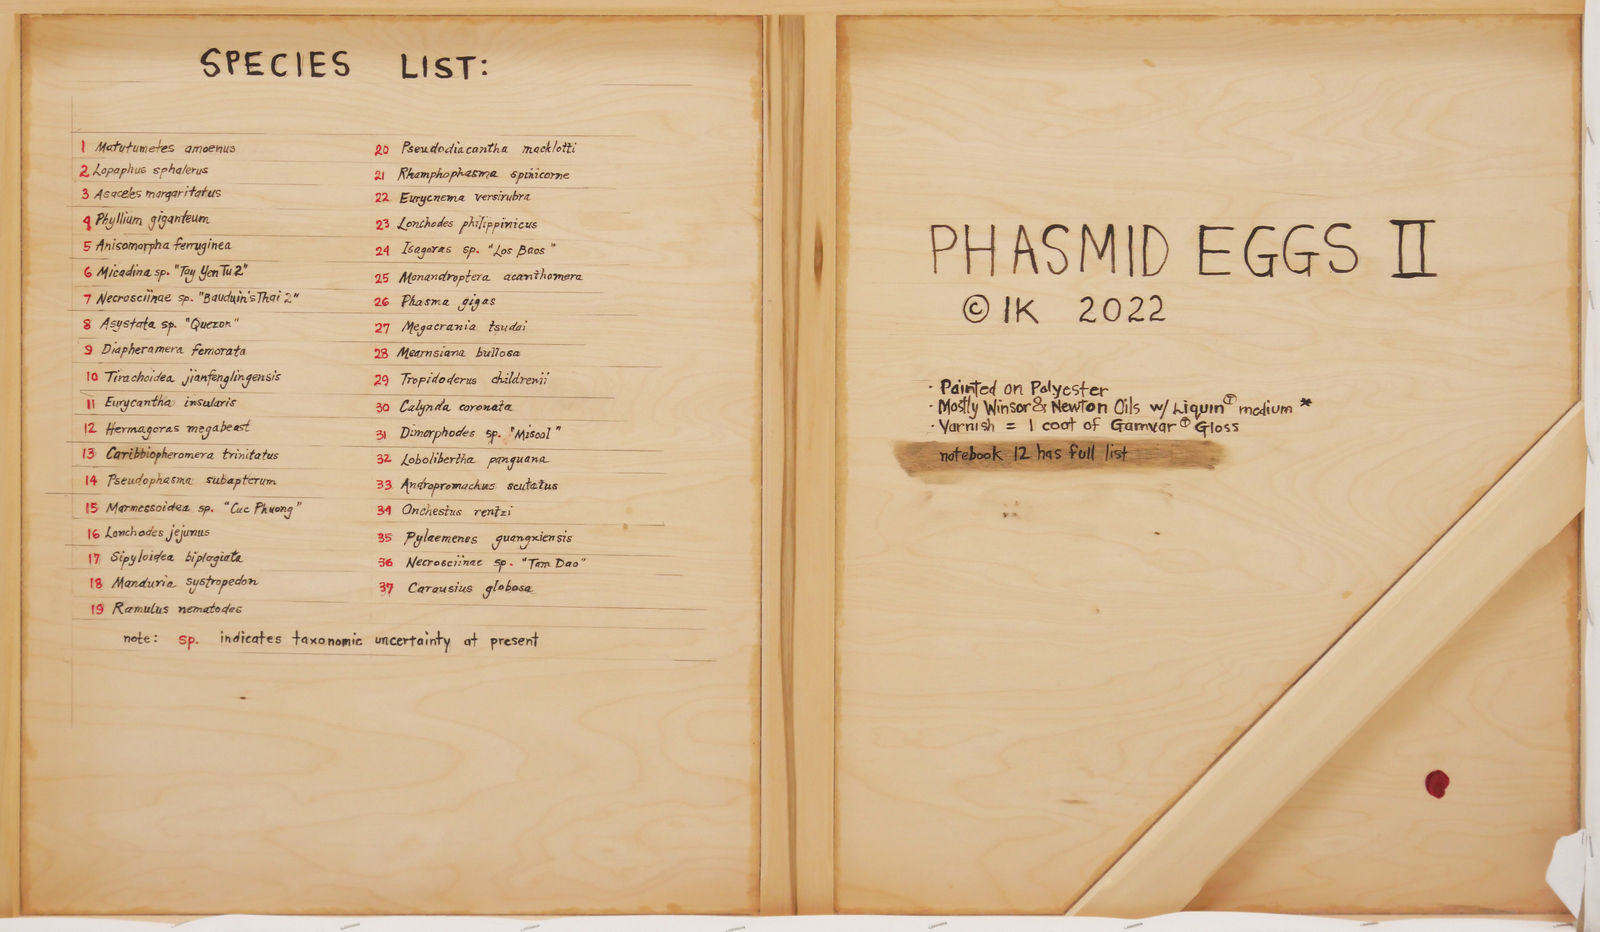 SPECIES LIST:
1 Matutumetes amoenus
2 Lopaphus sphalerus
3 Asceles margaritatus
4 Phyllium giganteum
5 Anisomorpha ferruginea
6 Micadina sp. "Tay Yen Tu 2"
7 Necrosciinae sp. "Bauduin's Thai 2"
8 Asystata sp. "Quezon"
9 Diapheramera femorata
10 Tirachoidea jianfenglingensis
11 Eurycantha insularis
12 Hermagoras megabeast
13 Caribbiopheromera trinitatus
14 Pseudophasma subapterum
15 Marmessoidea sp. "Cuc Phuong"
16 Lonchodes jejunus
17 Sipyloidea biplagiata
18 Manduria systropedon
19 Ramulus nematodes
20 Pseudodiacantha macklotti
21 Rhamphophasma spinicorne
22 Eurycnema versirubra
23 Lonchodes philippinicus
24 Isagoras sp. "Los Baos"
25 Monandroptera acanthomera
26 Phasma gigas
27 Megacrania tsudai
28 Mearnsiana bullosa
29 Tropidoderus childrenii
30 Calynda coronata
31 Dimorphodes sp. "Misool"
32 Lobolibertha panguana
33 Andropromachus scutatus
34 Onchestus rentzi
35 Pylaemenes guangxiensis
36 Necrosciinae sp. "Tam Dao"
37 Carausius globosa
note: sp. indicates taxonomic uncertainty at present
PHASMID EGGS II
© IK 2022
· Painted on Polyester
· Mostly Winsor & Newton Oils w/ Liquin medium *
· Varnish = 1 coat of Gamvar Gloss
notebook 12 has full list